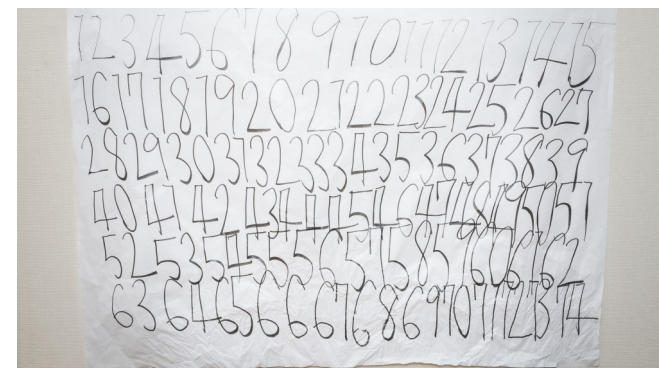 1 2 3 4 5 6 7 8 9 10 11 12 13 14 15
16 17 18 19 20 21 22 23 24 25 26 27
28 29 30 31 32 33 34 35 36 37 38 39
40 41 42 43 44 45 46 47 48 49 50 51
52 53 54 55 56 57 58 59 60 61 62
63 64 65 66 67 68 69 70 71 72 73 74